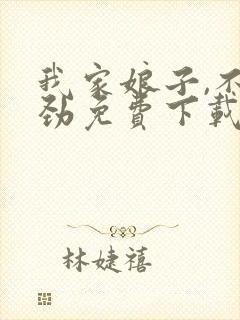 我家娘子,不
劲免费下载
林婕禧